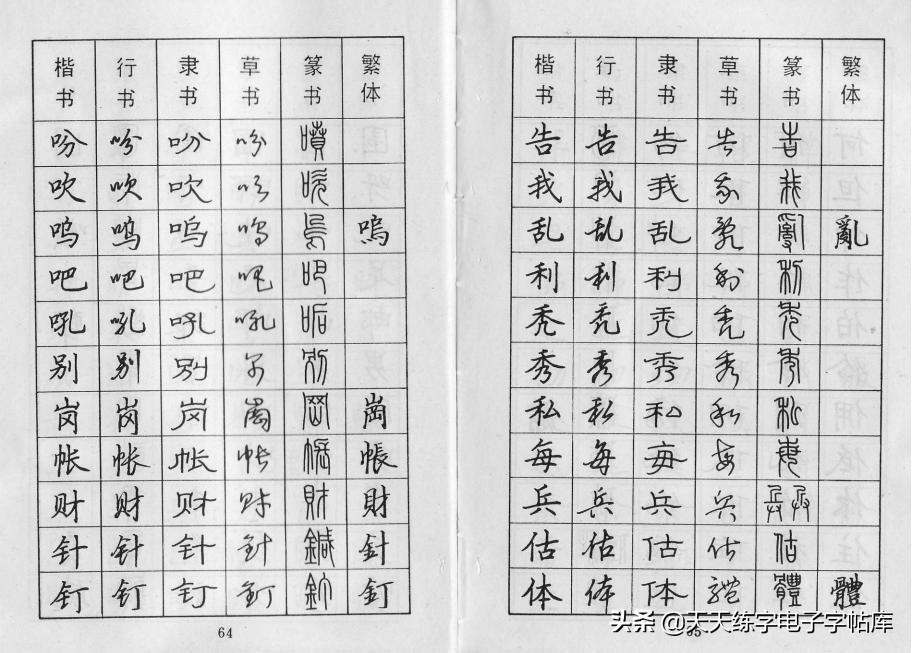 楷书 行书 隶书 草书 篆书 繁体
吩 吩 吩 吩 噴
吹 吹 吹 吹 吹
呜 呜 呜 呜 烏 嗚
吧 吧 吧 吧 吧
吼 吼 吼 吼 垢
别 别 别 别 别
岗 岗 岗 岗 岡 崗
帐 帐 帐 帐 帳 帳
财 财 财 财 財 財
针 针 针 针 鍼 針
钉 钉 钉 钉 釘 釘
64
楷书 行书 隶书 草书 篆书 繁体
告 告 告 告 告
我 我 我 我 我
乱 乱 乱 乱 亂 亂
利 利 利 利 利
秃 秃 秃 秃 秃
秀 秀 秀 秀 秀
私 私 私 私 私
每 每 每 每 每
兵 兵 兵 兵 兵
估 估 估 估 估
体 体 体 體 體 體
65
头条 @天天练字电子字帖库